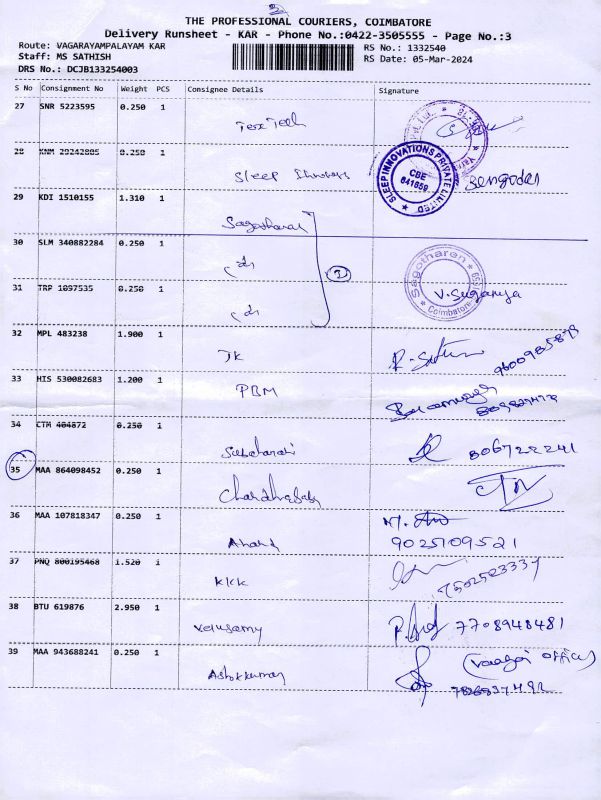 THE PROFESSIONAL COURIERS, COIMBATORE
Delivery Runsheet - KAR - Phone No.:0422-3505555 - Page No.:3
Route: VAGARAYAMPALAYAM KAR
RS No.: 1332540
Staff: MS SATHISH
RS Date: 05-Mar-2024
DRS No.: DCJB133254003
S No Consignment No Weight PCS Consignee Details Signature
27 SNR 5223595 0.250 1
Tex Tech
28 KNM 29242885 0.250 1
Sleep
SLEEP INNOVATIONS PRIVATE LIMITED
CBE
641659
29 KDI 1510155 1.310 1
Sagatharan
30 SLM 340882284 0.250 1
3
Sagatharan
Coimbatore
31 TRP 1097535 0.250 1
V. Suganya
32 MPL 483238 1.900 1
JK
9600985879
33 HIS 530082683 1.200 1
PBM
34 CTM 404872 0.250 1
806722241
35 MAA 864098452 0.250 1
36 MAA 107818347 0.250 1
Anand
9025109521
37 PNQ 800195468 1.520 1
KKK
38 BTU 619876 2.950 1
Velusamy
7708948481
39 MAA 943688241 0.250 1
Ashokkumar